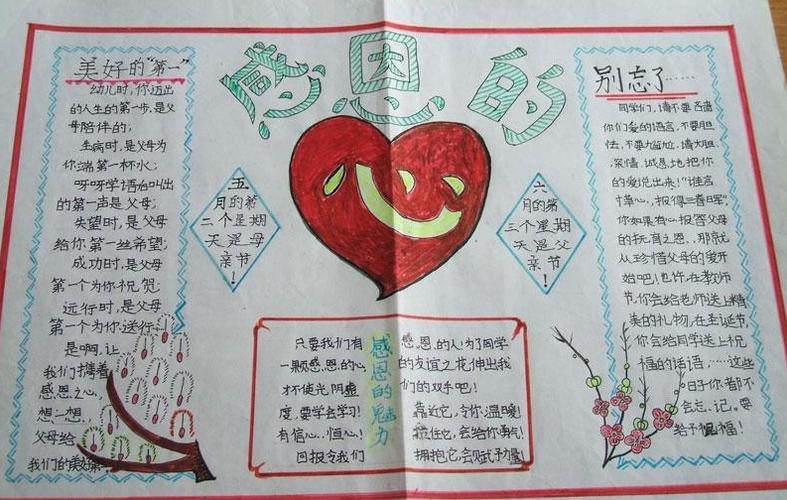 感恩的
心
美好的"第一"
幼儿时,你迈出
的人生的第一步,是父
母陪伴的;
生病时,是父母为
你端第一杯水;
呀呀学语,你叫出
的第一声是父母;
失望时,是父母
给你第一丝希望;
成功时,是父母
第一个为你祝贺;
远行时,是父母
第一个为你送行。
是啊,让
我们携着
感恩之心,
想一想,
父母给
我们的美好第一
五
月的第
二个星期
天是母
亲节
!
六
月的第
三个星期
天是父
亲节
!
感恩的魅力
只要我们有
一颗感恩的心
才不使光阴虚
度,要学会学习!
有信心、恒心!
回报令我们
感恩的人!为了同学
的友谊之花伸出我
们的双手吧!
靠近它,令你温暖!
握住它,会给你勇气!
拥抱它,会赋予力量!
别忘了……
同学们,请不要吝啬
你们爱的语言,不要胆
怯,不要尴尬,请大胆、
深情、诚恳地把你
的爱说出来!"谁言
寸草心,报得三春晖"。
你如果有心报答父母
的抚育之恩、那就
从珍惜父母的爱开
始吧!也许,在教师
节,你会给老师送上精
美的礼物,在圣诞节,
你会给同学送上祝
福的话语,……这些
日子你都不
会忘记。要
给予祝福!